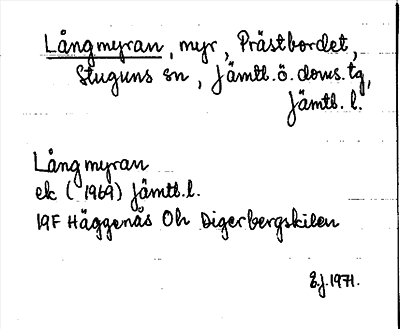 Långmyran, myr, Prästbordet,
Stuguns sn, Jämtl. ö. doms. tg,
Jämtl. l.
Långmyran
ek (1969) Jämtl. l.
19F Häggenås Oh Digerbergskilen
E.J. 1971.